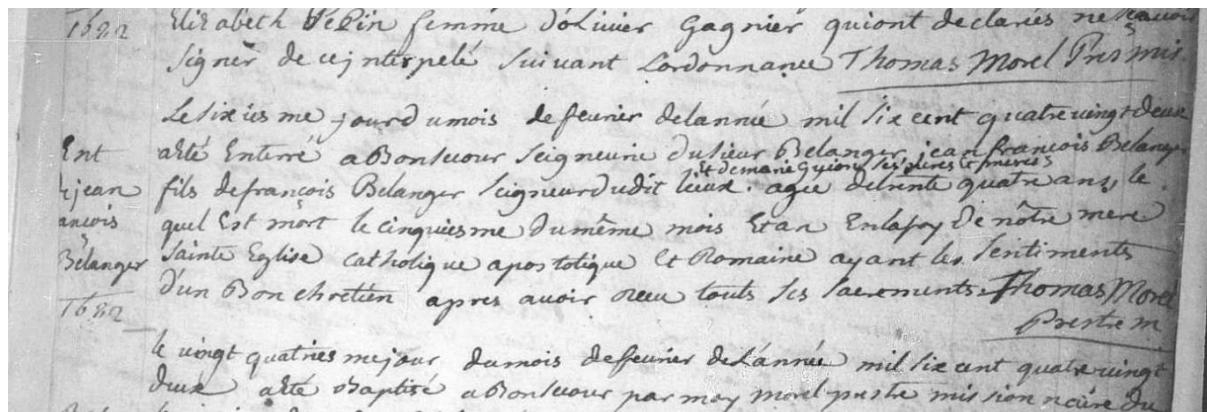 1682
Elizabeth Pepin femme dolivier Gagnier quiont declarés ne scavoir
signer de ce jnterpelé suivant Lordonnance Thomas Morel Pres mis.
Le sixiesme jour dumois de fevrier delannée mil six cent quatre vingt deux
Ent
aété Enterré a Bonsecour seigneurie dusieur Belanger jean francois Belanger
et de marie Guion ses peres et meres
jean
fils defrançois Belanger seigneur dudit lieux. agée detrente quatre ans, le
ancois
quel Est mort le cinquiesme du même mois Et an Enlafoy De nôtre mere
Bélanger
Sainte Eglise catholique apostolique Et Romaine ayant les sentiments
1682
D'un Bon chretien apres avoir receu touts ses sacrements. Thomas Morel
Prestre m
le vingt quatriesme jour dumois defevrier del'année mil six cent quatre vingt
deux aété Baptisé a Bonsecour par moy morel prestre missionnaire du